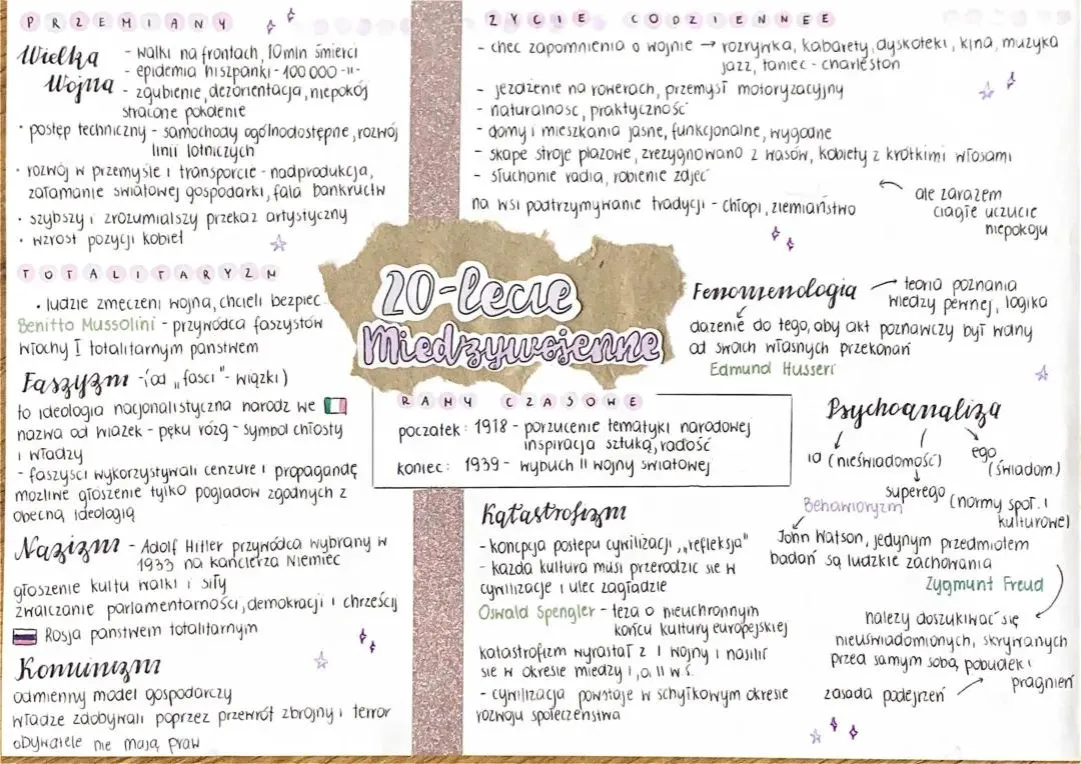 PRZEMIANY
Wielka Wojna
- walki na frontach, 10mln śmierci
- epidemia hiszpanki - 100 000 -11-
- zgubienie, dezorientacja, niepokój
stracone pokolenie
· postęp techniczny - samochody ogólnodostępne, rozwój
linii lotniczych
· rozwój w przemyśle i transporcie - nadprodukcja,
załamanie światowej gospodarki, fala bankructw
· szybszy i zrozumialszy przekaz artystyczny
· wzrost pozycji kobiet
TOTALITARYZM
· ludzie zmęczeni wojną, chcieli bezpiec.
Benitto Mussolini - przywódca faszystów
Włochy I totalitarnym państwem
Faszyzm - (od "fasci" - wiązki)
to ideologia nacjonalistyczna narodz we
nazwa od wiązek - pęku rózg - symbol chłosty
i władzy
- faszyści wykorzystywali cenzurę i propagandę
możliwe głoszenie tylko poglądów zgodnych z
obecną ideologią
Nazizm - Adolf Hitler przywódca wybrany w
1933 na kanclerza Niemiec
głoszenie kultu walki i siły
zwalczanie parlamentarności, demokracji i chrześcij
Rosja państwem totalitarnym
Komunizm
odmienny model gospodarczy
władze zdobywali poprzez przewrót zbrojny i terror
obywatele nie mają praw
ŻYCIE CODZIENNEE
- chęc zapomnienia o wojnie → rozrywka, kabarety, dyskoteki, kina, muzyka
jazz, taniec - charleston
- jeżdżenie na rowerach, przemysł motoryzacyjny
- naturalność, praktyczność
- domy i mieszkania jasne, funkcjonalne, wygodne
- skąpe stroje plażowe, zrezygnowano z wąsów, kobiety z krótkimi włosami
- słuchanie radia, robienie zdjęć
ale zarazem
ciągłe uczucie
niepokoju
na wsi podtrzymywanie tradycji - chłopi, ziemiaństwo
20-lecie
Międzywojenne
RAMY CZASOWE
początek: 1918 - porzucenie tematyki narodowej
inspiracja sztuką, radość
koniec: 1939 - wybuch II wojny światowej
Fenomenologia
teoria poznania
wiedzy pewnej, logika
dążenie do tego, aby akt poznawczy był wolny
od swoich własnych przekonań
Edmund Husserl
Psychoanaliza
id (nieświadomość)
ego
(świadom)
superego (normy społ. i
kulturowe)
Behawioryzm
John Watson, jedynym przedmiotem
badań są ludzkie zachowania
Zygmunt Freud
należy doszukiwać się
nieuświadomionych, skrywanych
przed samym sobą, pobudek i
pragnień
zasada podejrzeń
Katastrofizm
- koncpcja postępu cywilizacji ,,refleksja"
- każda kultura musi przerodzić się w
cywilizację i ulec zagładzie
Oswald Spengler - teza o nieuchronnym
końcu kultury europejskiej
katastrofizm wyrastał z I wojny i nasilił
się w okresie między I, a II w.ś.
- cywilizacja powstaje w schyłkowym okresie
rozwoju społeczeństwa